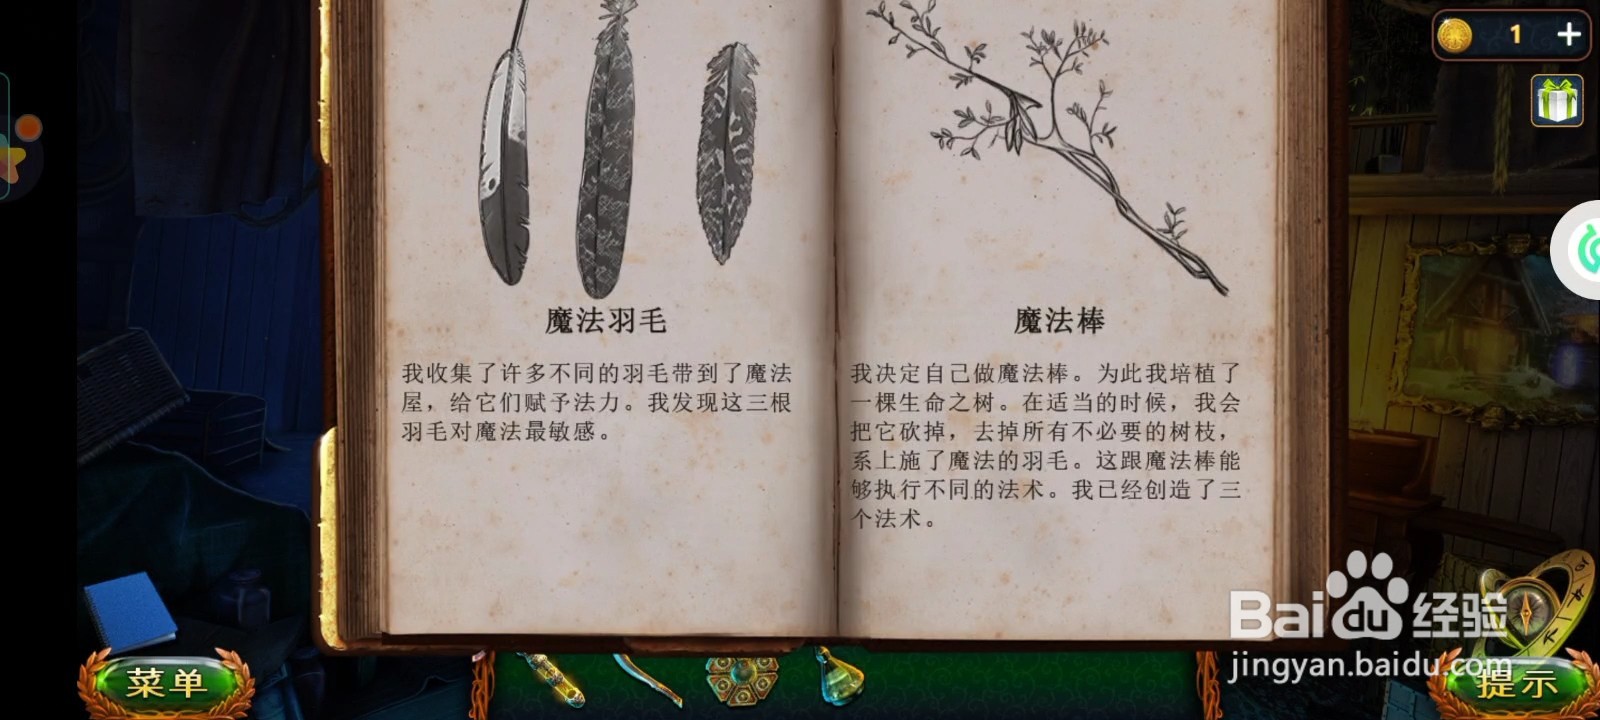 1
魔法羽毛
我收集了许多不同的羽毛带到了魔法
屋，给它们赋予法力。我发现这三根
羽毛对魔法最敏感。
魔法棒
我决定自己做魔法棒。为此我培植了
一棵生命之树。在适当的时候，我会
把它砍掉，去掉所有不必要的树枝，
系上施了魔法的羽毛。这跟魔法棒能
够执行不同的法术。我已经创造了三
个法术。
菜单
提示
Bai du 经验
jingyan.baidu.com